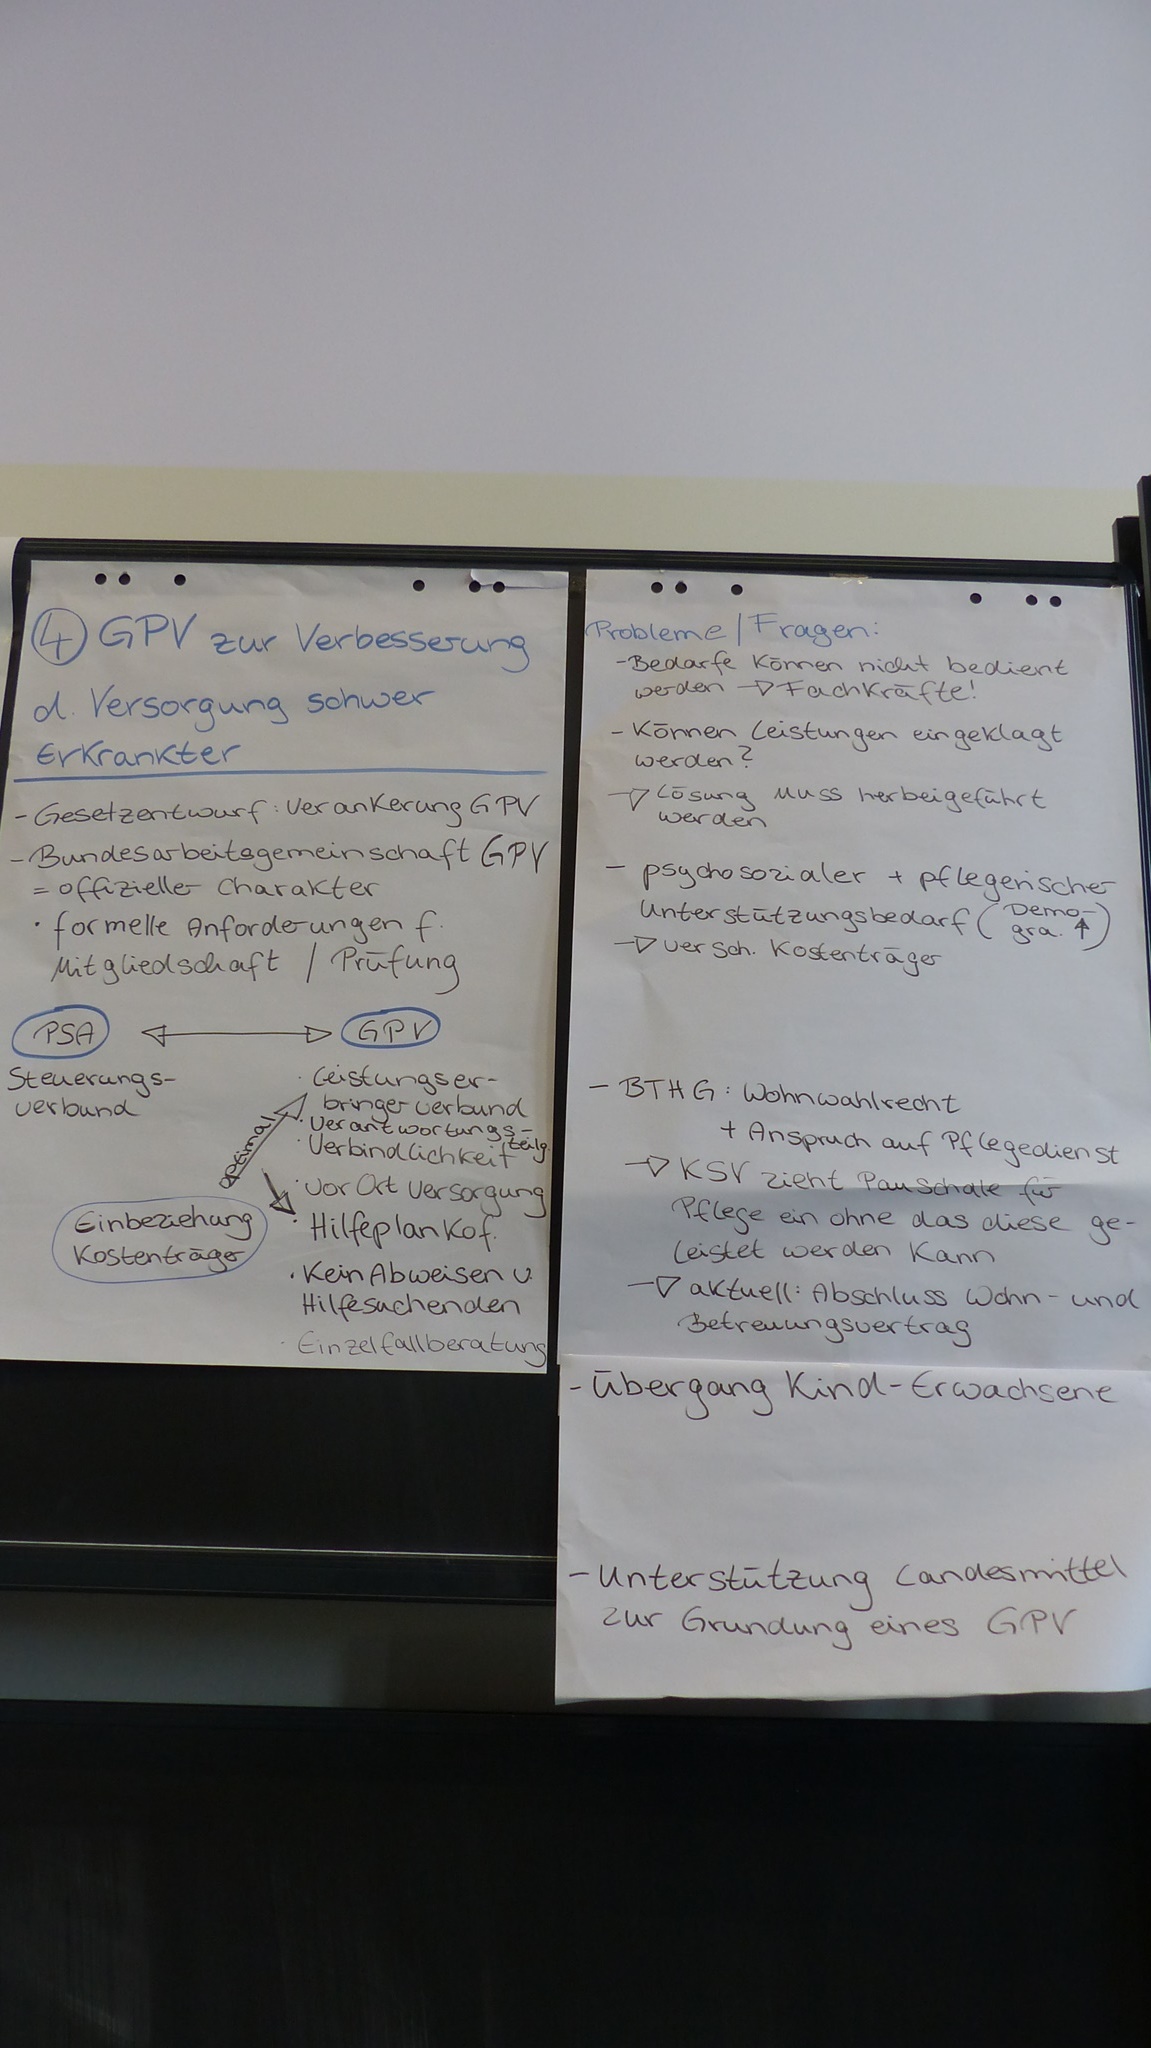 ④ GPV zur Verbesserung
d. Versorgung schwer
Erkrankter
- Gesetzentwurf: Verankerung GPV
- Bundesarbeitsgemeinschaft GPV
= offizieller Charakter
· formelle Anforderungen f.
Mitgliedschaft / Prüfung
PSA ↔ GPV
Steuerungs-
verbund
· Leistungser-
bringerverbund
· Verantwortungs-
teilg.
· Verbindlichkeit
· Vor Ort Versorgung
optimal
Einbeziehung
Kostenträger
· Hilfeplankof.
· Kein Abweisen v.
Hilfesuchenden
· Einzelfallberatung
Probleme / Fragen:
- Bedarfe können nicht bedient
werden → Fachkräfte!
- Können Leistungen eingeklagt
werden?
→ Lösung muss herbeigeführt
werden
- psychosozialer + pflegerischer
Unterstützungsbedarf (Demo-
gra. ↑)
→ versch. Kostenträger
- BTHG: Wohnwahlrecht
+ Anspruch auf Pflegedienst
→ KSV zieht Pauschale für
Pflege ein ohne das diese ge-
leistet werden kann
→ aktuell: Abschluss Wohn- und
Betreuungsvertrag
- Übergang Kind-Erwachsene
- Unterstützung Landesmittel
zur Gründung eines GPV